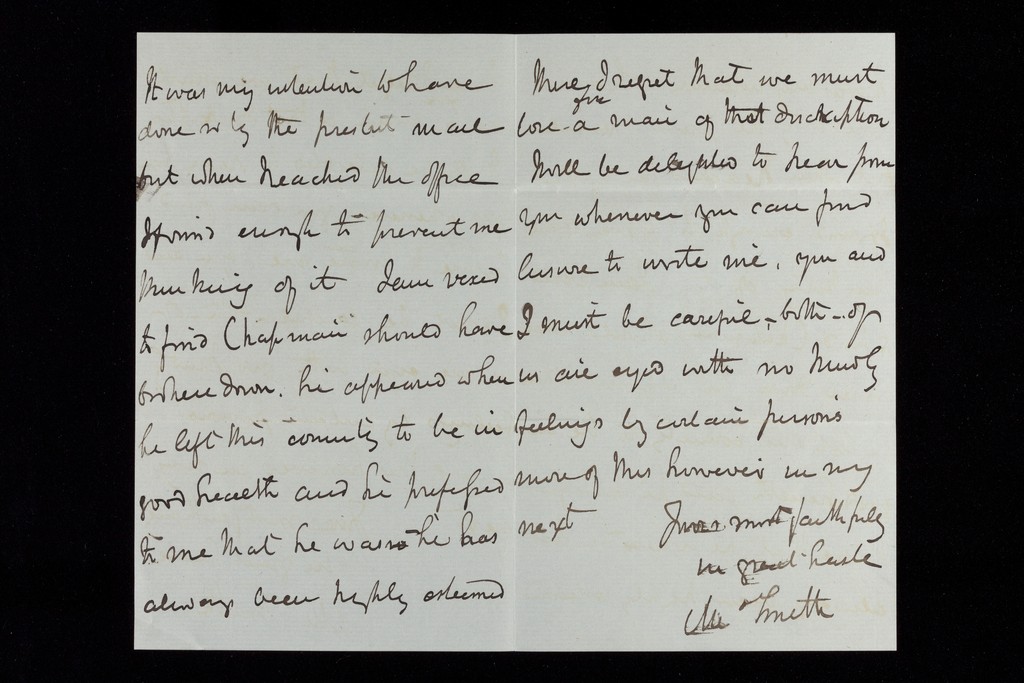 It was my intention to have
done so by the present mail
but when I reached the office
I found enough to prevent me
thinking of it I am vexed
to find Chapman should have
broken down. he appeared when
he left this country to be in
good health and he professed
to me that he was he has
always been highly esteemed
here, I regret that we must
lose a man of that discription
I will be delighted to hear from
you whenever you can find
leisure to write me, you and
I must be careful - both - of
us are eyed with no friendly
feelings by certain persons
more of this however in my
next Yours most faithfully
in great haste
Smith